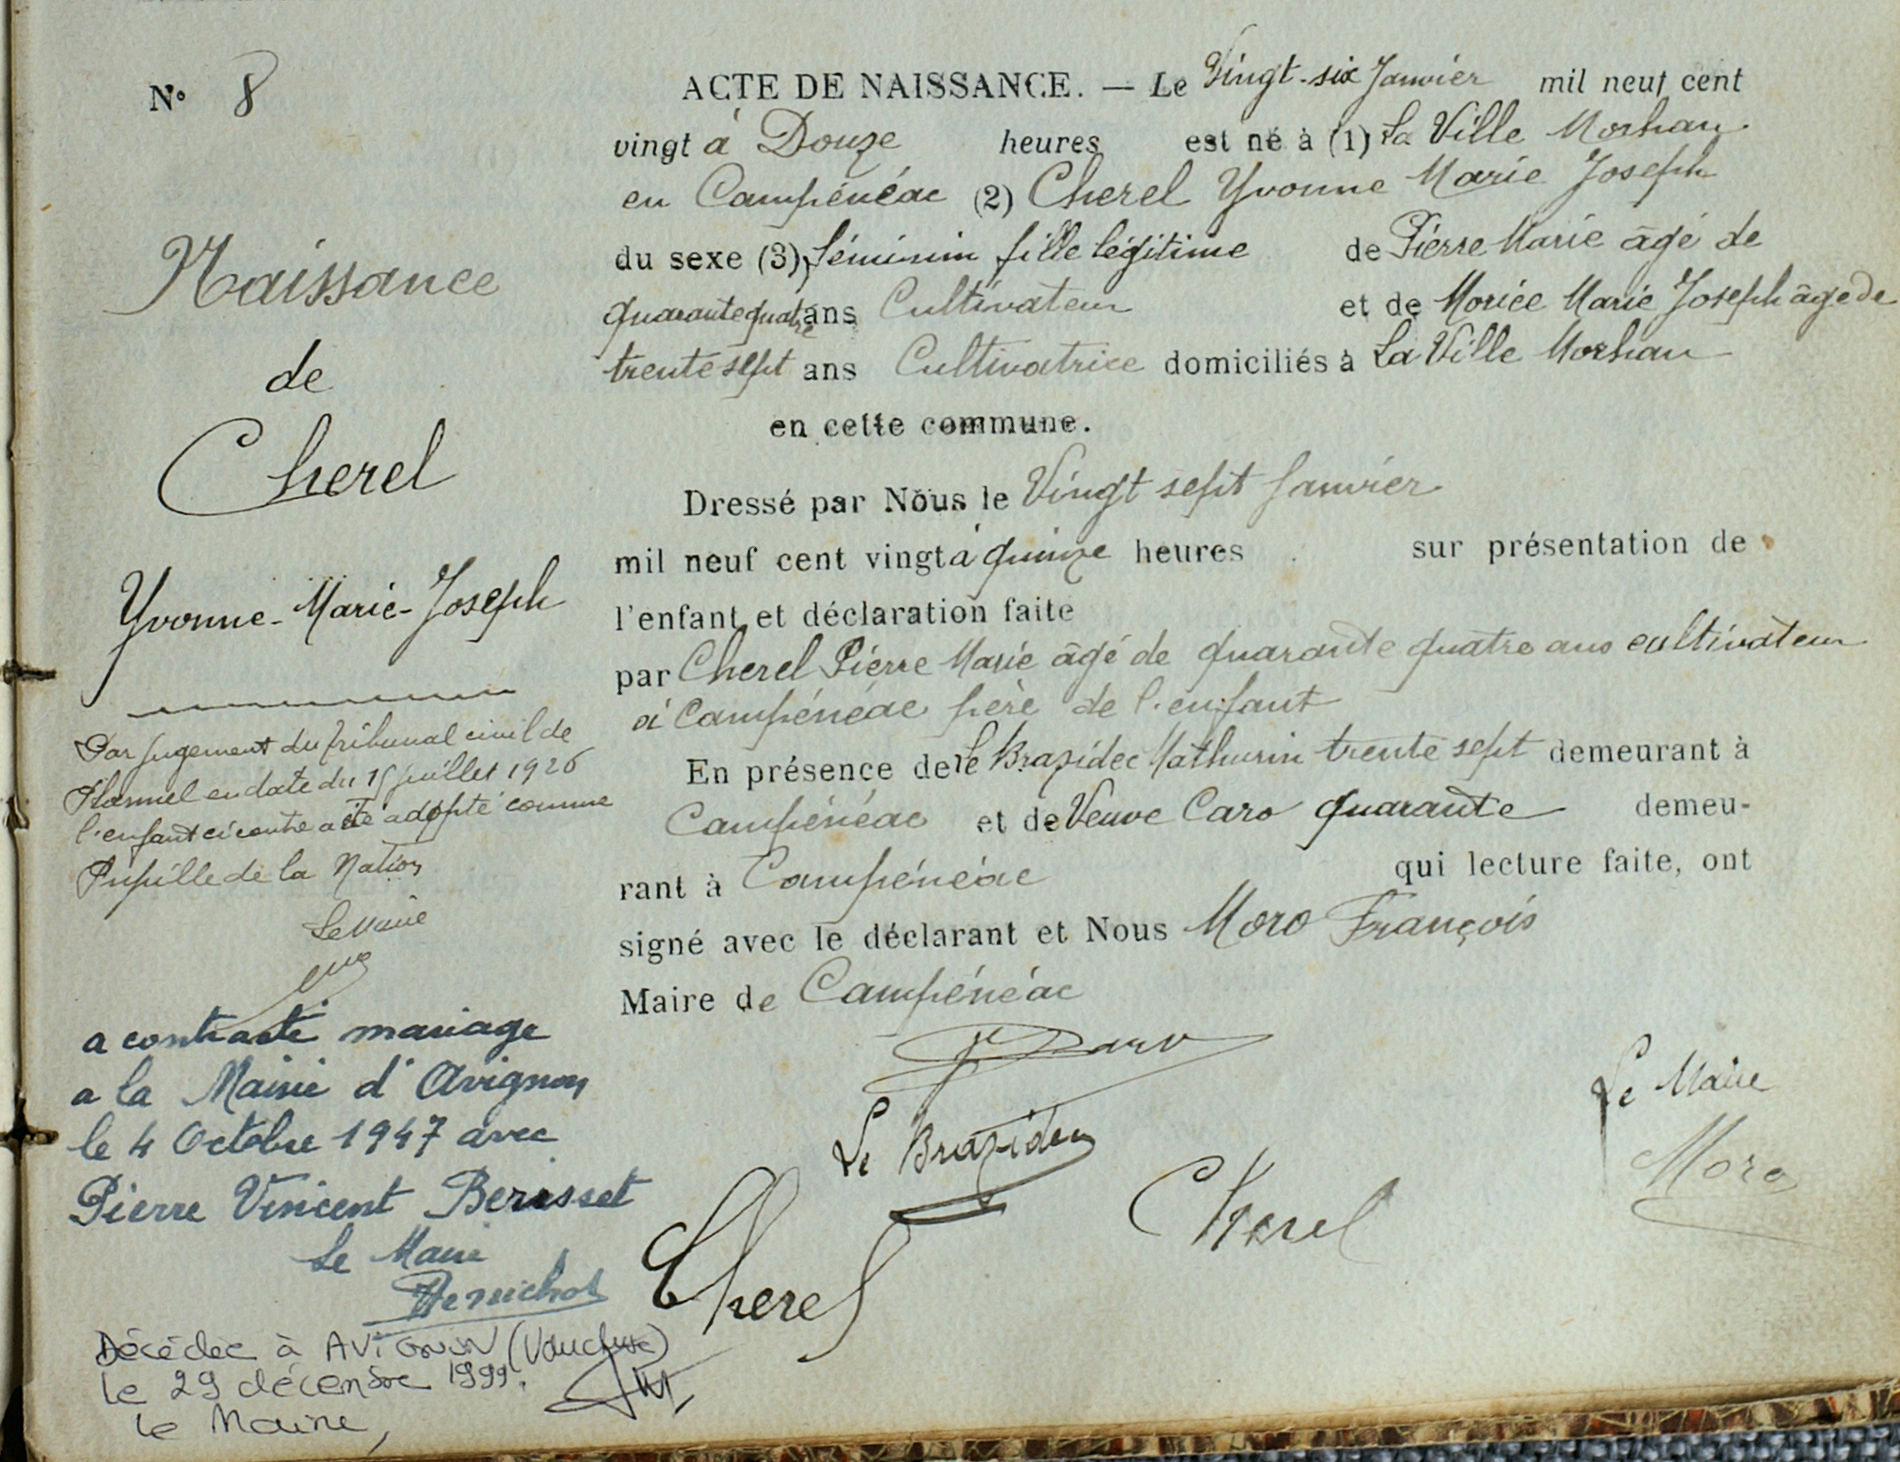 N° 8
Naissance
de
Cherel
Yvonne-Marie-Joseph
Par jugement du tribunal civil de
Ploermel en date du 15 juillet 1926
l'enfant ci contre a été adopté comme
Pupille de la Nation
Le Maire
a contracté mariage
a la Mairie d'Avignon
le 4 Octobre 1947 avec
Pierre Vincent Berisset
Le Maire
Décédée à AVIGNON (Vaucluse)
le 29 décembre 1999.
Le Maire,
ACTE DE NAISSANCE. — Le Vingt-six Janvier mil neuf cent
vingt à Douze heures est né à (1) La Ville Morhan
en Campénéac (2) Cherel Yvonne Marie Joseph
du sexe (3) féminin fille légitime de Pierre Marie âgé de
quarante quatre ans Cultivateur et de Morice Marie Joseph âgé de
trente sept ans Cultivatrice domiciliés à La Ville Morhan
en cette commune.
Dressé par Nous le Vingt sept Janvier
mil neuf cent vingt à quinze heures sur présentation de
l'enfant et déclaration faite
par Cherel Pierre Marie âgé de quarante quatre ans cultivateur
à Campénéac père de l'enfant
En présence de Le Brazidec Mathurin trente sept demeurant à
Campénéac et de Veuve Caro quarante demeu-
rant à Campénéac qui lecture faite, ont
signé avec le déclarant et Nous Moro François
Maire de Campénéac
Le Brazidec
Le Maire
Moro
Cherel
Cherel